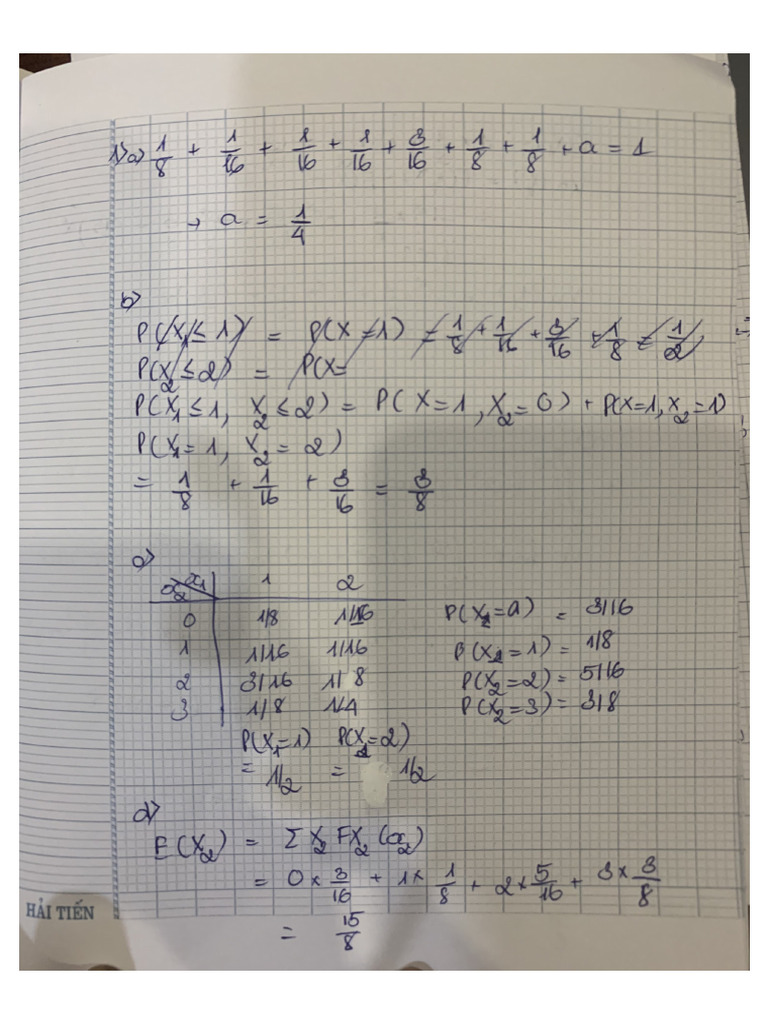 1> a> 1/8 + 1/16 + 1/16 + 1/16 + 3/16 + 1/8 + 1/8 + a = 1
→ a = 1/4
b>
P(X1 ≤ 1) = P(X=1) = 1/8 + 1/16 + 3/16 + 1/8 = 1/2
P(X2 ≤ 2) = P(X=
P(X1 ≤ 1, X2 ≤ 2) = P(X=1, X2=0) + P(X=1, X2=1)
P(X1=1, X2=2)
= 1/8 + 1/16 + 3/16 = 3/8
c>
x2 x1 1 2
0 1/8 1/16 P(X2=0) = 3/16
1 1/16 1/16 P(X2=1) = 1/8
2 3/16 1/8 P(X2=2) = 5/16
3 1/8 1/4 P(X2=3) = 3/8
P(X1=1) P(X1=2)
= 1/2 = 1/2
d>
E(X2) = Σ X2 FX2 (x2)
= 0 × 3/16 + 1 × 1/8 + 2 × 5/16 + 3 × 3/8
= 15/8
HẢI TIẾN